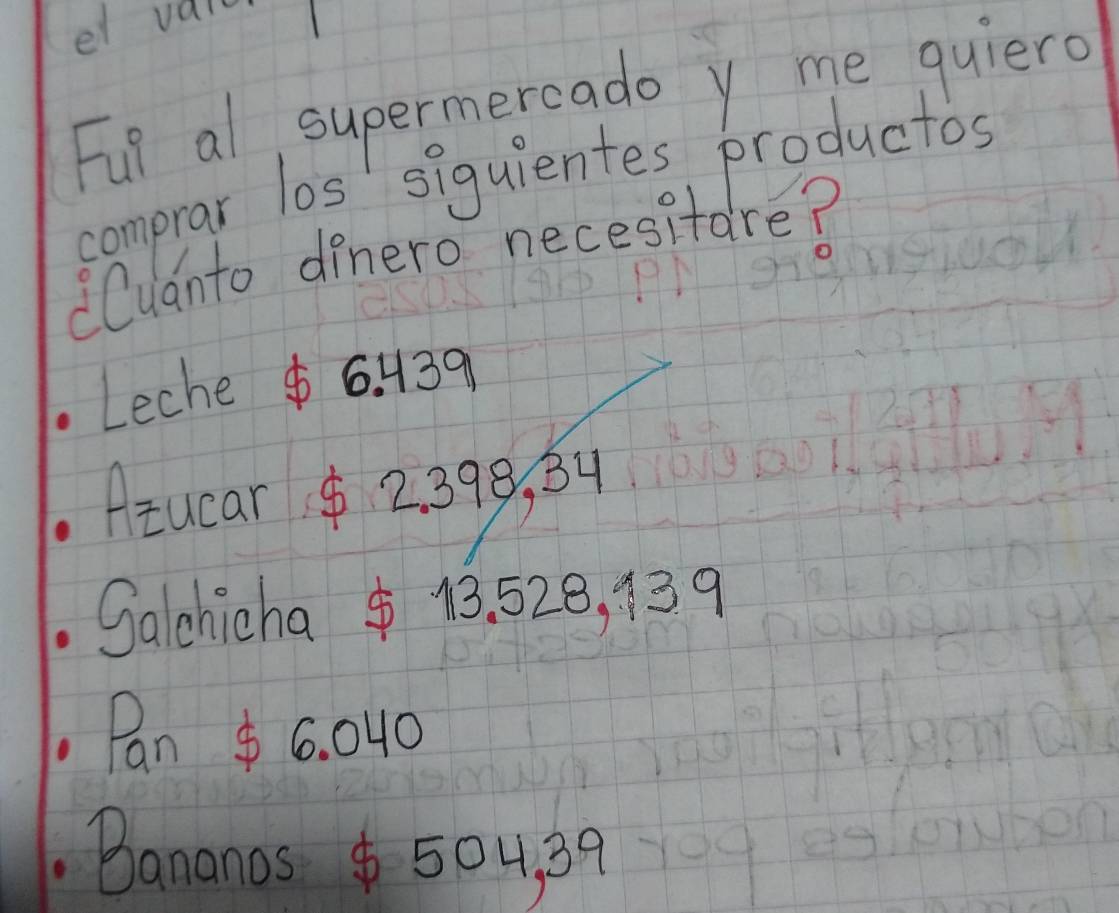 el
Fui al supermercado y me quiero
comprar los siguientes productos
¿Cuánto dinero necesitaré?
• Leche $ 6.439
• Azucar $ 2.398,34
• Salchicha $ 13.528,139
• Pan $ 6.040
• Bananos $ 504,39